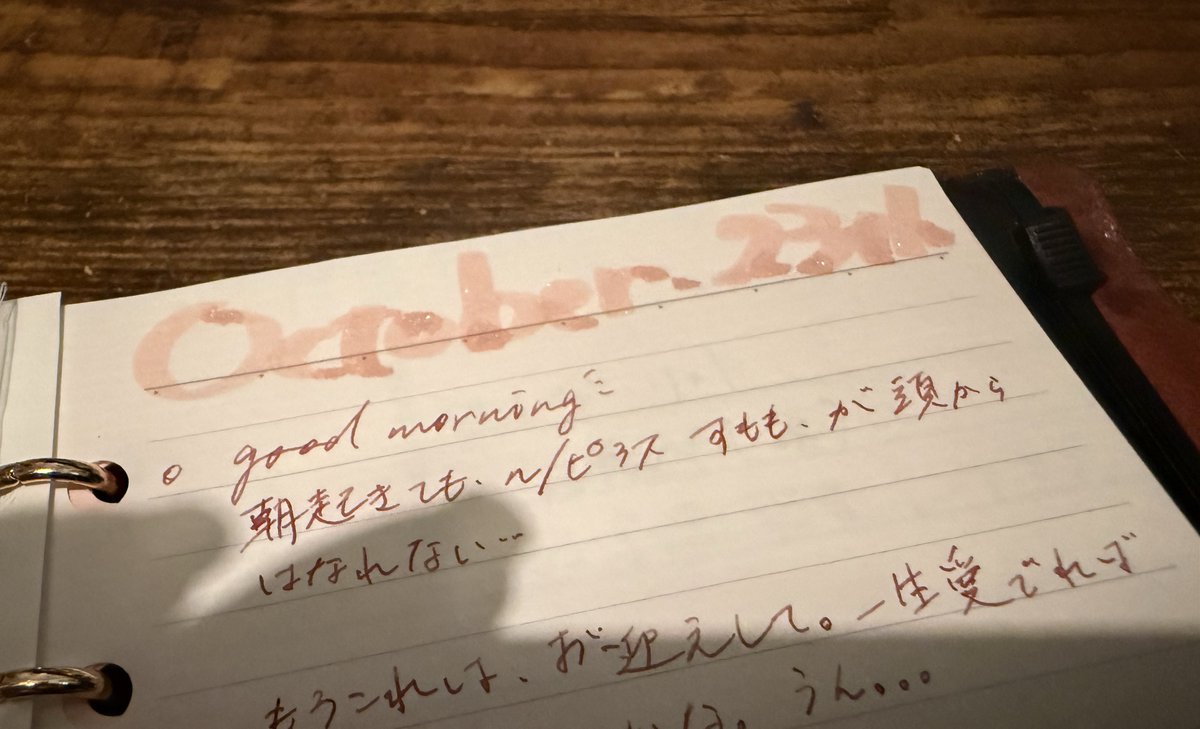 October. 23rd
○ good morning
朝起きても、n/ピュス すもも、が頭から
はなれない…
もうこれは、お迎えして。一生愛でれば
は。うん...